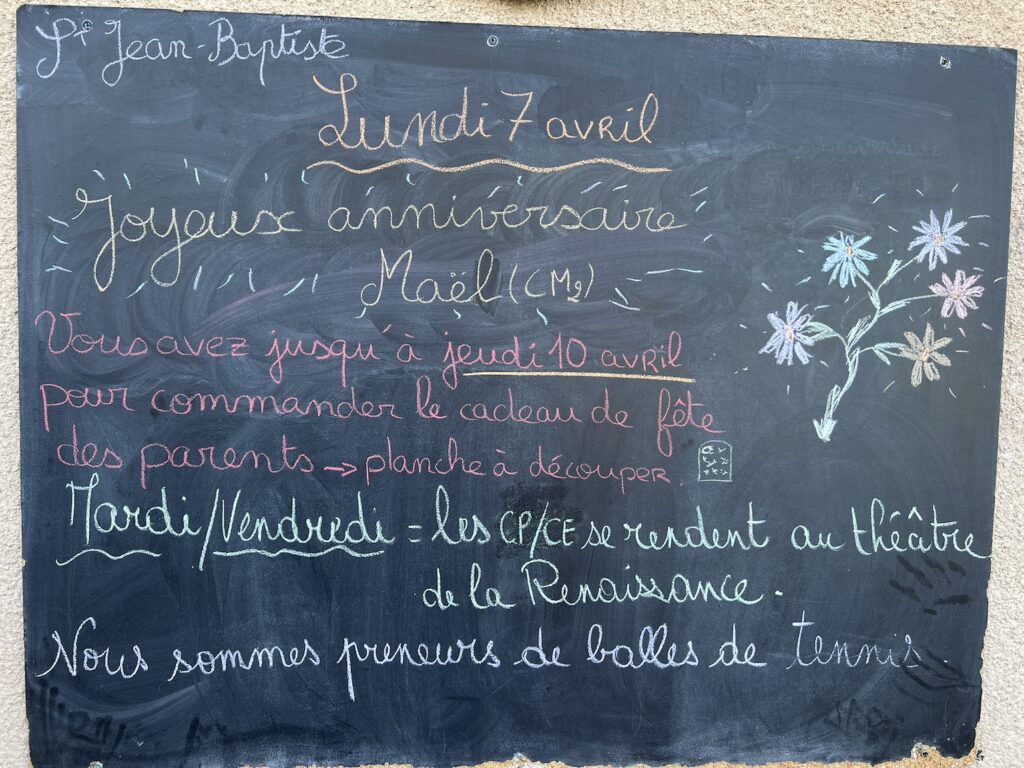 St Jean-Baptiste
Lundi 7 avril
Joyeux anniversaire
Maël (CM2)
Vous avez jusqu'à jeudi 10 avril
pour commander le cadeau de fête
des parents → planche à découper.
Mardi/Vendredi = les CP/CE se rendent au théâtre
de la Renaissance.
Nous sommes preneurs de balles de tennis.